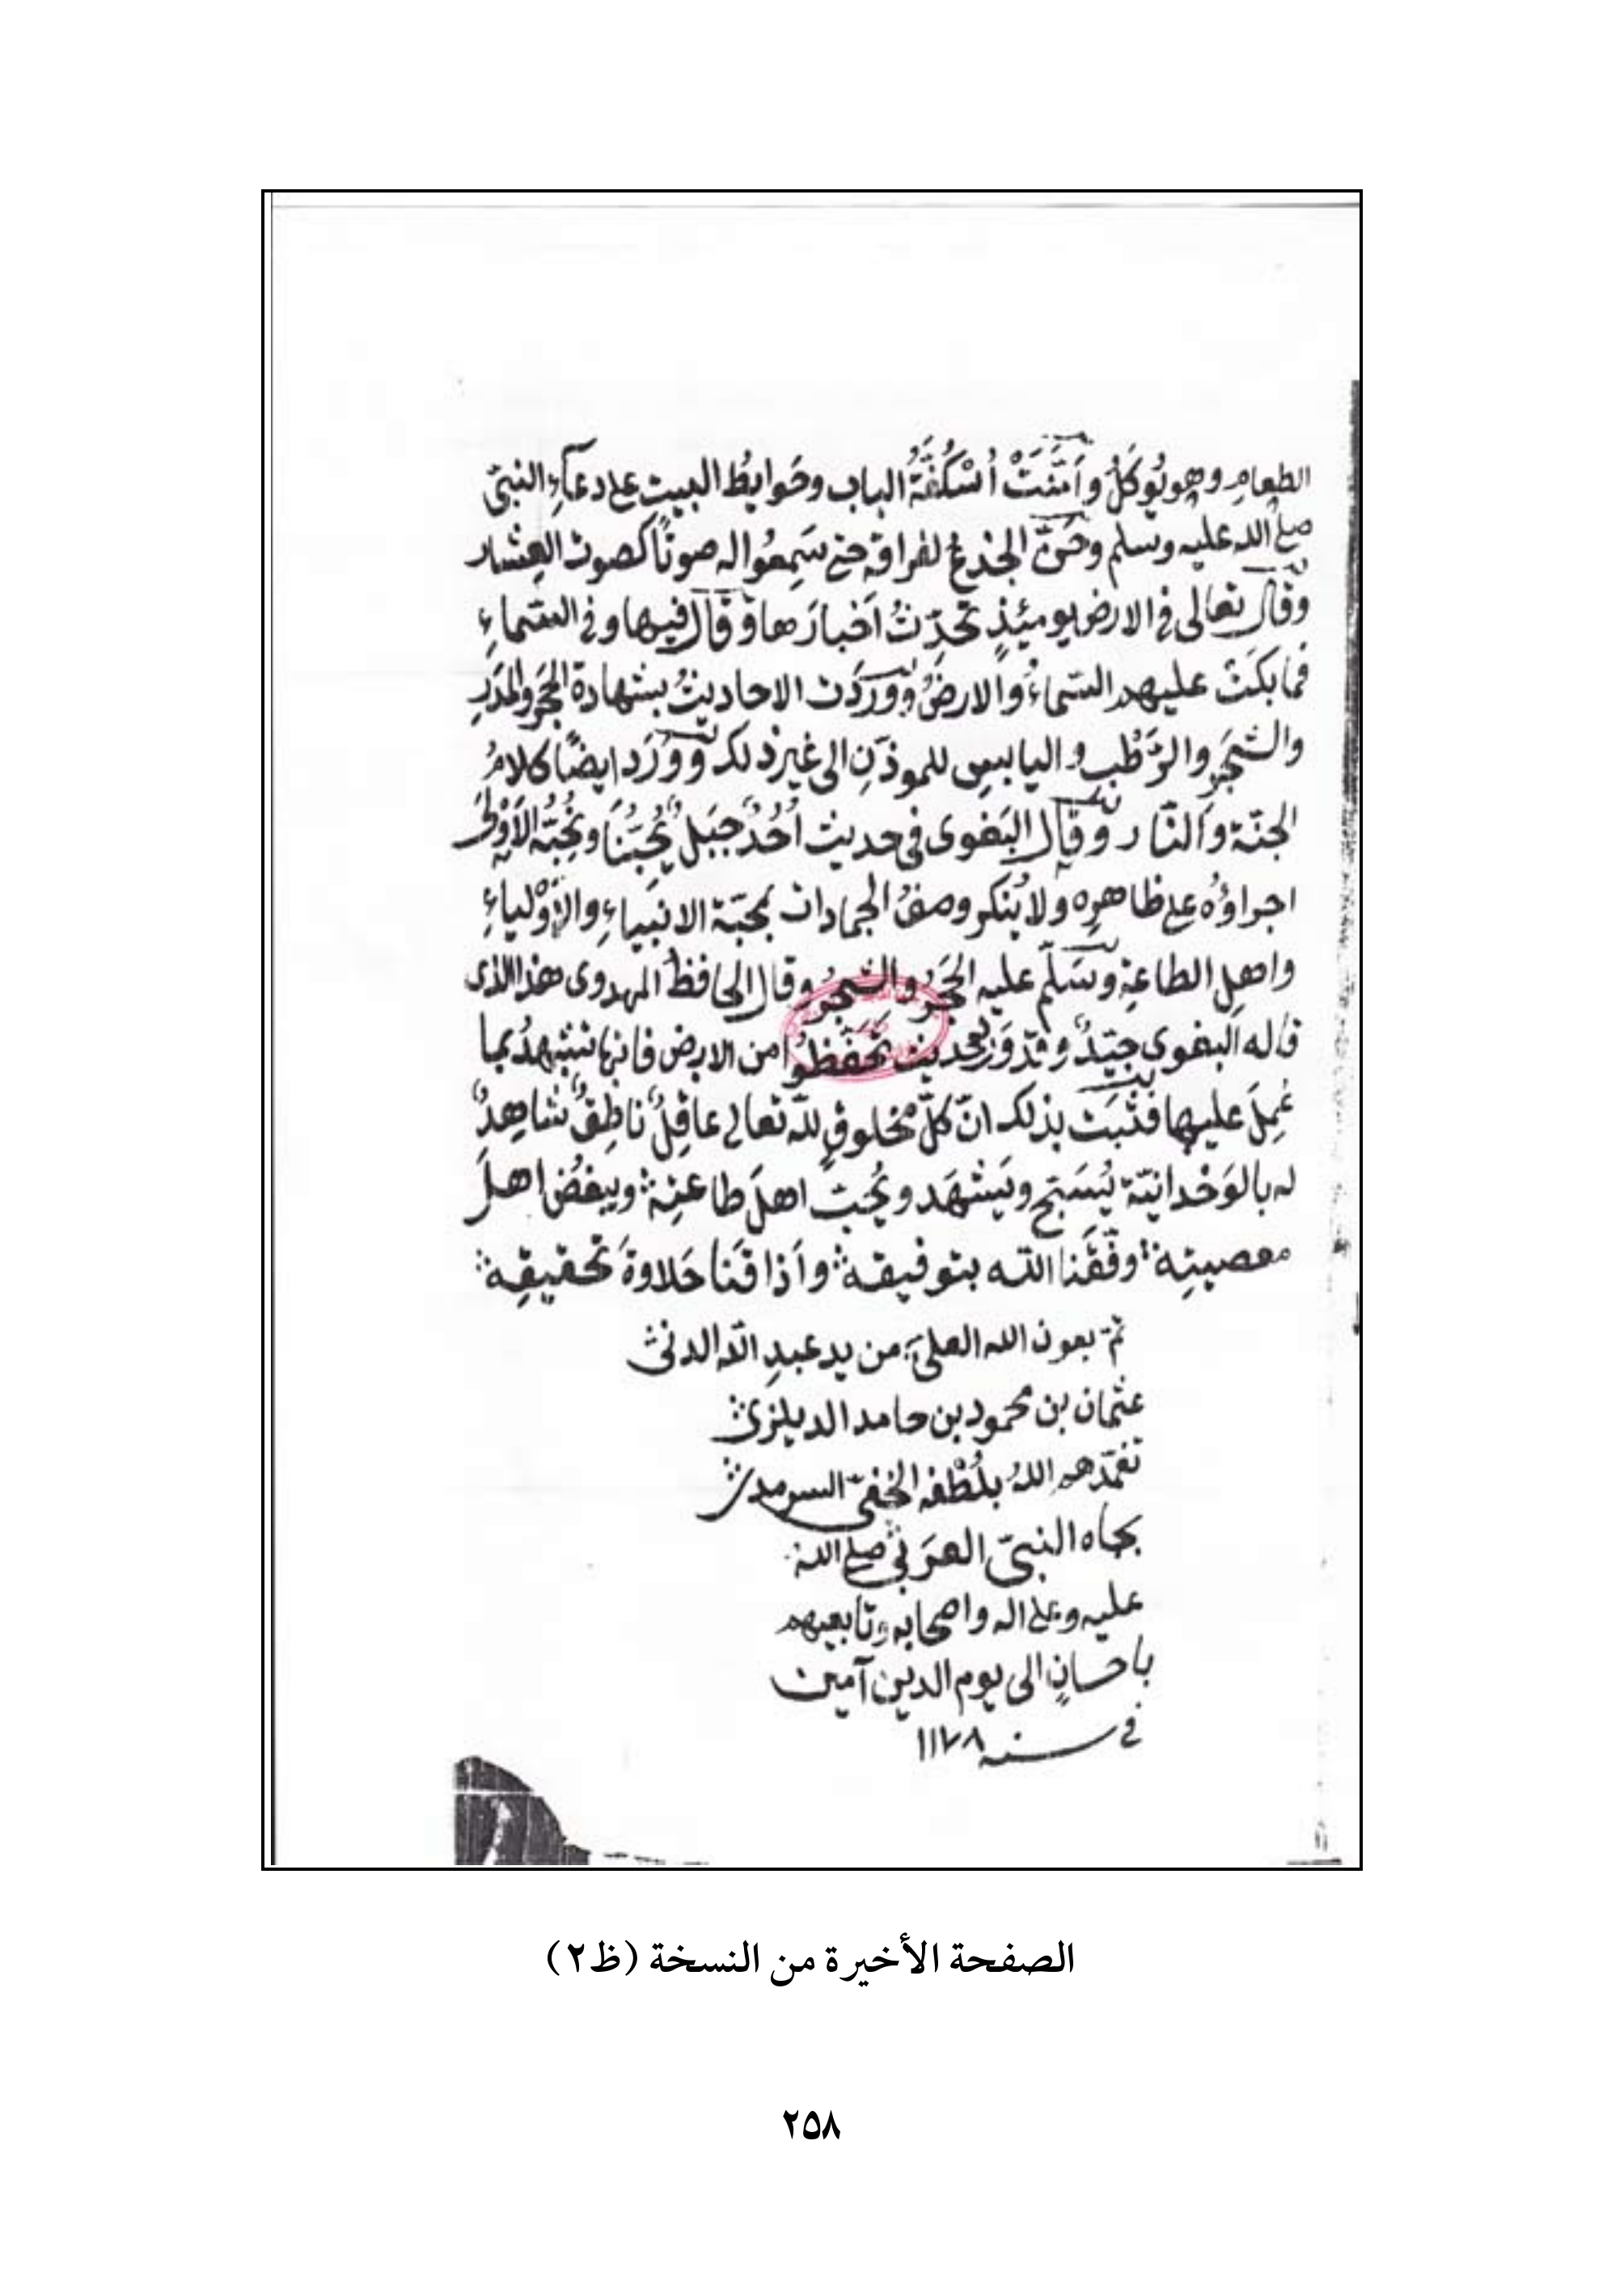 الطعامِ وهو يُوكَلُ وأمّنَتْ أُسْكُفَّةُ الباب وحَوايطُ البيت على دعآءِ النبىّ
صلى الله عليه وسلم وحَنّ الجذعُ لفراقه حتى سَمِعُوا له صوتًا كصوت العشار
وقال تعالى فى الارض يومئذٍ تحدّثُ أخبارَها وقال فيها وفى السّماءِ
فما بكَتْ عليهم السّماءُ والارضُ ووَرَدَت الاحاديثُ بشهادة الحجَر والمدَرِ
والشجَرِ والرَّطْب واليابسِ للموذّنِ الى غير ذلك ووَرَد ايضًا كلامُ
الجنّة والنّار وقال البَغوى فى حديث أُحُدٌ جبَلٌ يُحبّنَا ونُحِبّهُ الأوْلَى
اجراؤهُ على ظاهرِه ولا يُنكر وصفُ الجمادات بمحبّة الانبياءِ والأوْلياءِ
واهلِ الطاعةِ وسَلّم عليه الحَجَرُ والشجَرُ وقال الحافظ المهدوى هذا الذى
قاله البغوى جيّدٌ وقد وَرَد حديث تحَفّظُوا من الارض فانها تشهدُ بما
عُمِلَ عليها فثبَت بذلك انّ كلّ مخلوقٍ للّه تعالى عاقِلٌ ناطِقٌ شاهِدٌ
له بالوَحْدانيّة يُسَبّح ويَشهَد ويُحِبّ اهلَ طاعتِه ويبغُض اهلَ
معصيتِه وفّقَنا اللّه بتوفيقه وأذاقَنا حَلاوةَ تحقيقِه
تمّ بعون الله العلىّ من يد عبدِ اللّه الدنى
عثمان بن محمود بن حامد الديلزى
تغمّدهم اللهُ بلُطْفه الخفىّ السرمدى
بجاه النبىّ العرَبى صلى الله
عليه وعلى اله واصحابه وتابعيهم
باحسانٍ الى يوم الدين آمين
فى سنه ١١٧٨
الصفحة الأخيرة من النسخة (ظ٢)
٢٥٨